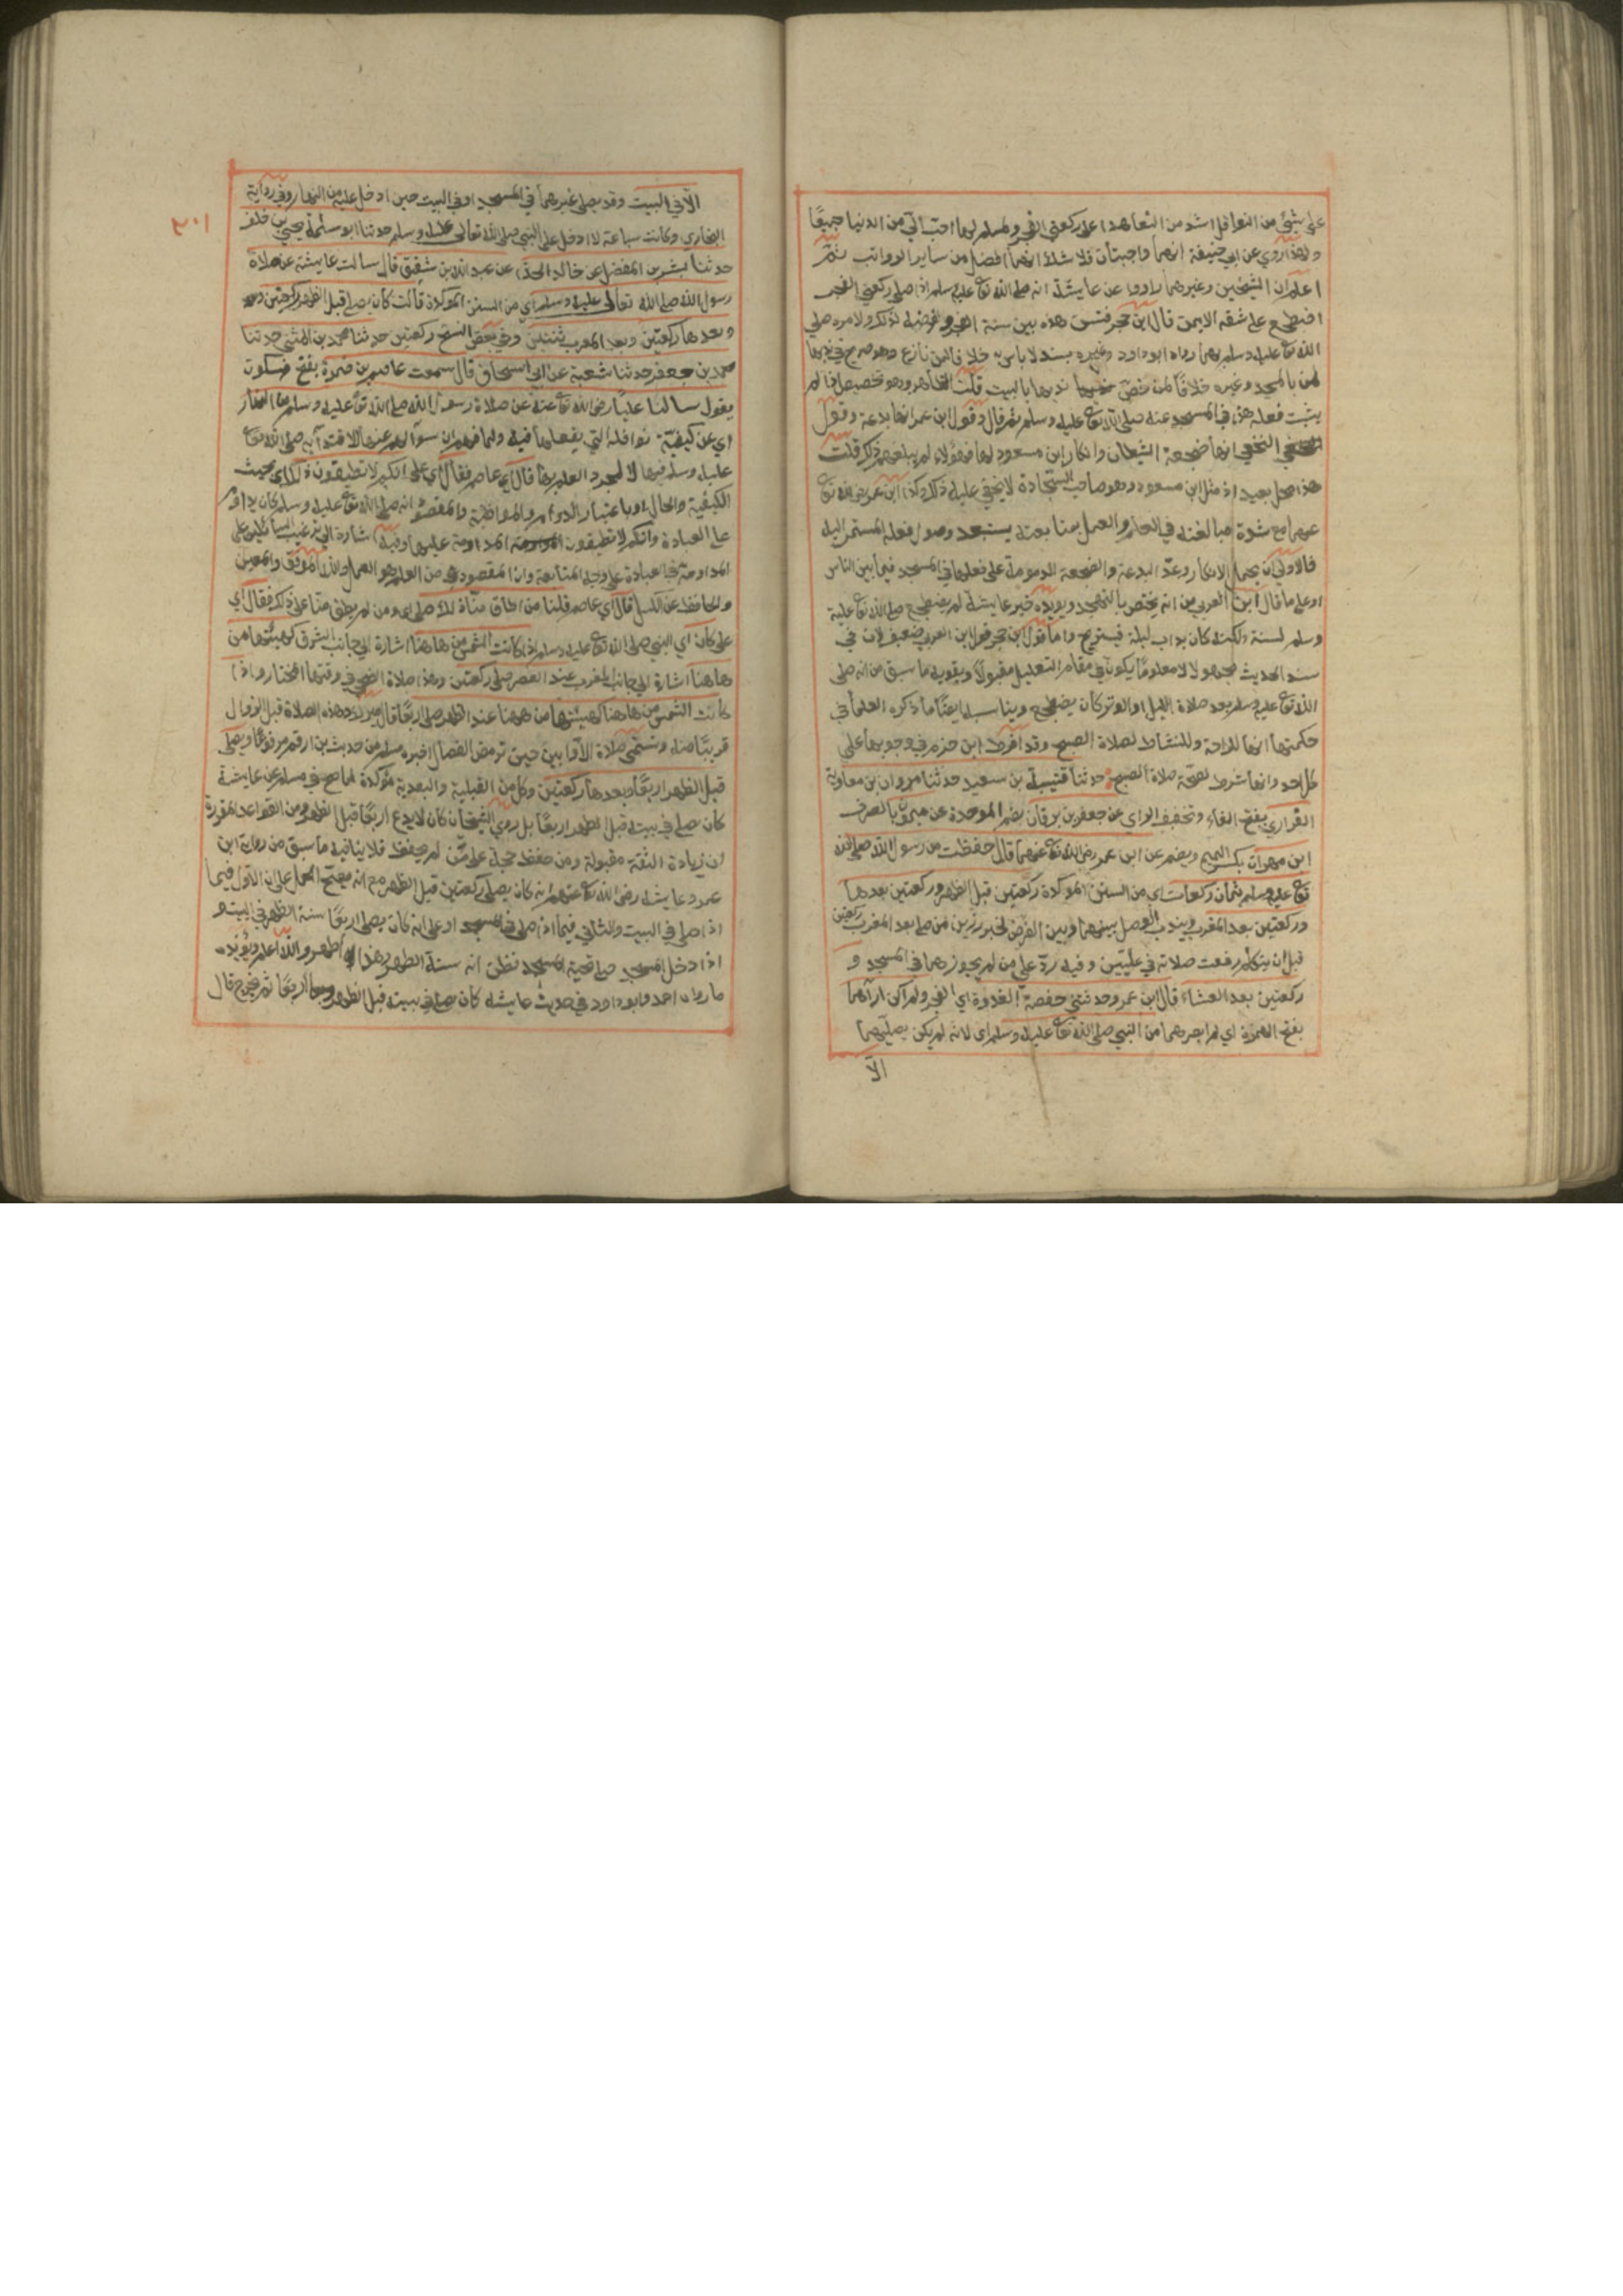 على شيئ من النوافل اشد من التعاهد على ركعتي الفجر ولمسلم لهما احب الي من الدنيا جميعا
ولهذا روي عن ابي حنيفة انهما واجبتان فلا شك انهما افضل من ساير الرواتب ثم
اعلم ان الشيخين وغيرهما رادوا عن عايشة انه صلى الله تع عليه وسلم اذا صلى ركعتي الفجر
اضطجع على شقه الايمن قال ابن حجر فتسن هذه بين سنة الفجر وفرضه لذلك ولامره صلى
الله تع عليه وسلم بهما رواه ابو داود وغيره بسند لا باس به خلافا لمن نازع وهو صريح في ندبها
لمن بالمسجد وغيره خلافا لمن خص ندبها بالبيت قلت الظاهر وهو تخصيص اذا لم
يثبت فعله هذه في المسجد عنه صلى الله تع عليه وسلم ثم قال وقول ابن عمر انها بدعة وقول
النخعي انها ضجعة الشيطان وانكار ابن مسعود لها فهؤلاء لم يبلغهم ذلك قلت
هذا محل بعيد اذ مثل ابن مسعود وهو صاحب السجادة لا يخفى عليه ذلك وكذا ابن عمر رضي الله تع
عنهما مع شدة مبالغته في العلم والعمل بمتابعته يستبعد وصول فعله المستمر اليه
فالاولى ان يحمل الانكار وعد البدعة والضجعة المذمومة على فعلها في المسجد فيما بين الناس
او على ما قال ابن العربي من انه يختص بالتهجد ويؤيده خبر عايشة لم يضطجع صلى الله تع عليه
وسلم لسنة ولكنه كان يداب ليله فيستريح واما قول ابن حجر قول ابن العربي ضعيف لان في
سند الحديث مجهولا لا معلوما يكون في مقام التعليل مقبولا ويقويه ما سبق من انه صلى
الله تع عليه وسلم بعد صلاة الليل او الوتر كان يضطجع ويناسبه ايضا ما ذكره العلما في
حكمتها انها للراحة وللنشاط لصلاة الصبح وقد افرط ابن حزم في وجوبها على
كل احد وانها شرط لصحة صلاة الصبح حدثنا قتيبة بن سعيد حدثنا مروان بن معاوية
الفزاري بفتح الفاء وتخفيف الزاي عن جعفر بن برقان بضم الموحدة عن ميمون بالصرف
ابن مهران بكسر الميم ويضم عن ابن عمر رضي الله تع عنهما قال حفظت من رسول الله صلى الله
تع عليه وسلم ثمان ركعات اي من السنن المؤكدة ركعتين قبل الظهر وركعتين بعدها
وركعتين بعد المغرب ويندب الوصل بينهما وبين الفرض لخبر رزين من صلى بعد المغرب ركعتين
قبل ان يتكلم رفعت صلاته في عليين وفيه رد على من لم يجوزهما في المسجد و
ركعتين بعد العشاء قال ابن عمر وحدثتني حفصة الغدوة اي الفجر ولم اكن اراهما
بفتح الهمزة اي لم ابصرهما من النبي صلى الله تع عليه وسلم اي لانه لم يكن يصليهما
الا
٢٠١
الا في البيت وقد يصلى غيرهما في المسجد او في البيت حين ادخل عليه من النهار وفي رواية
البخاري وكانت ساعة لا ادخل على النبي صلى الله تعالى عليه وسلم حدثنا ابو سلمة يحيى بن خلف
حدثنا بشر بن المفضل عن خالد الحذاء عن عبد الله بن شقيق قال سالت عايشة عن صلاة
رسول الله صلى الله تعالى عليه وسلم اي من السنن المؤكدة قالت كان يصلي قبل الظهر ركعتين
وبعدها ركعتين وبعد المغرب ثنتين وفي بعض النسخ ركعتين حدثنا محمد بن المثنى حدثنا
محمد بن جعفر حدثنا شعبة عن ابي اسحاق قال سمعت عاصم بن ضمرة بفتح فسكون
يقول سالنا عليا رضي الله تع عنه عن صلاة رسول الله صلى الله تع عليه وسلم من النهار
اي عن كيفية نوافله التي يفعلها فيه ولما فهم ان سوالهم عنها للاقتداء به صلى الله تع
عليه وسلم فيها لا لمجرد العلم بها قال اي عاصم فقال اي علي انكم لا تطيقون ذلك اي بحيث
الكيفية والحال او باعتبار الدوام والمواظبة والمقصود انه صلى الله تع عليه وسلم كان يداوم
على العبادة وانكم لا تطيقون المداومة عليها وفيه اشارة الى ترغيب السائلين على
المداومة في العبادة على وجه المتابعة وان المقصود من العلم هو العمل والله الموفق والمعين
والحافظ عن الكسل قال اي عاصم قلنا من اطاق منا ذلك صلى ومن لم يطق منا على ذلك فقال اي
علي كان اي النبي صلى الله تع عليه وسلم اذا كانت الشمس من هاهنا اشارة الى جانب الشرق كهيئتها من
هاهنا اشارة الى جانب المغرب عند العصر صلى ركعتين وهذا صلاة الضحى في وقتها المختار واذا
كانت الشمس من هاهنا كهيئتها من ههنا عند الظهر صلى اربعا قال ميرك وهذه الصلاة قبل الزوال
قريبا منه وتسمى صلاة الاوابين حين ترمض الفصال اخبره مسلم من حديث بن ارقم مرفوعا ويصلي
قبل الظهر اربعا وبعدها ركعتين وكل من القبلية والبعدية مؤكدة لما صح في مسلم عن عايشة
كان صلى في بيته قبل الظهر اربعا بل روى الشيخان كان لا يدع اربعا قبل الظهر ومن القواعد المقررة
ان زيادة الثقة مقبولة ومن حفظ حجة على من لم يحفظ فلا ينافيه ما سبق من رواية ابن
عمر وعايشة رضي الله تع عنهم انه كان يصلي ركعتين قبل الظهر مع انه يصح الحمل على ان الاول فيما
اذا صلى في البيت والثاني فيما اذا صلى في المسجد او على انه كان يصلي اربعا سنة الظهر في البيت و
اذا دخل المسجد صلى تحية المسجد فظن انه سنة الظهر وهذا اظهر والله اعلم ويؤيده
ما رواه احمد وابو داود في حديث عايشة كان يصلي في بيته قبل الظهر اربعا ثم يخرج قال